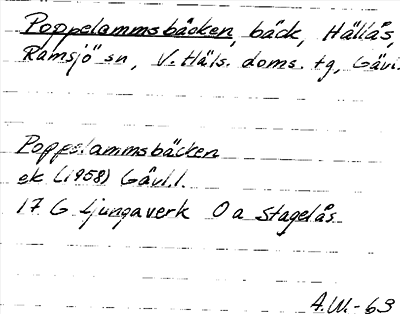 Poppelammsbäcken, bäck, Hällås,
Ramsjö sn, V. Häls. doms. tg, Gävl.
Poppelammsbäcken
ek (1958) Gävl.l.
17 G Ljungaverk 0 a Stagelås
A.W.-63